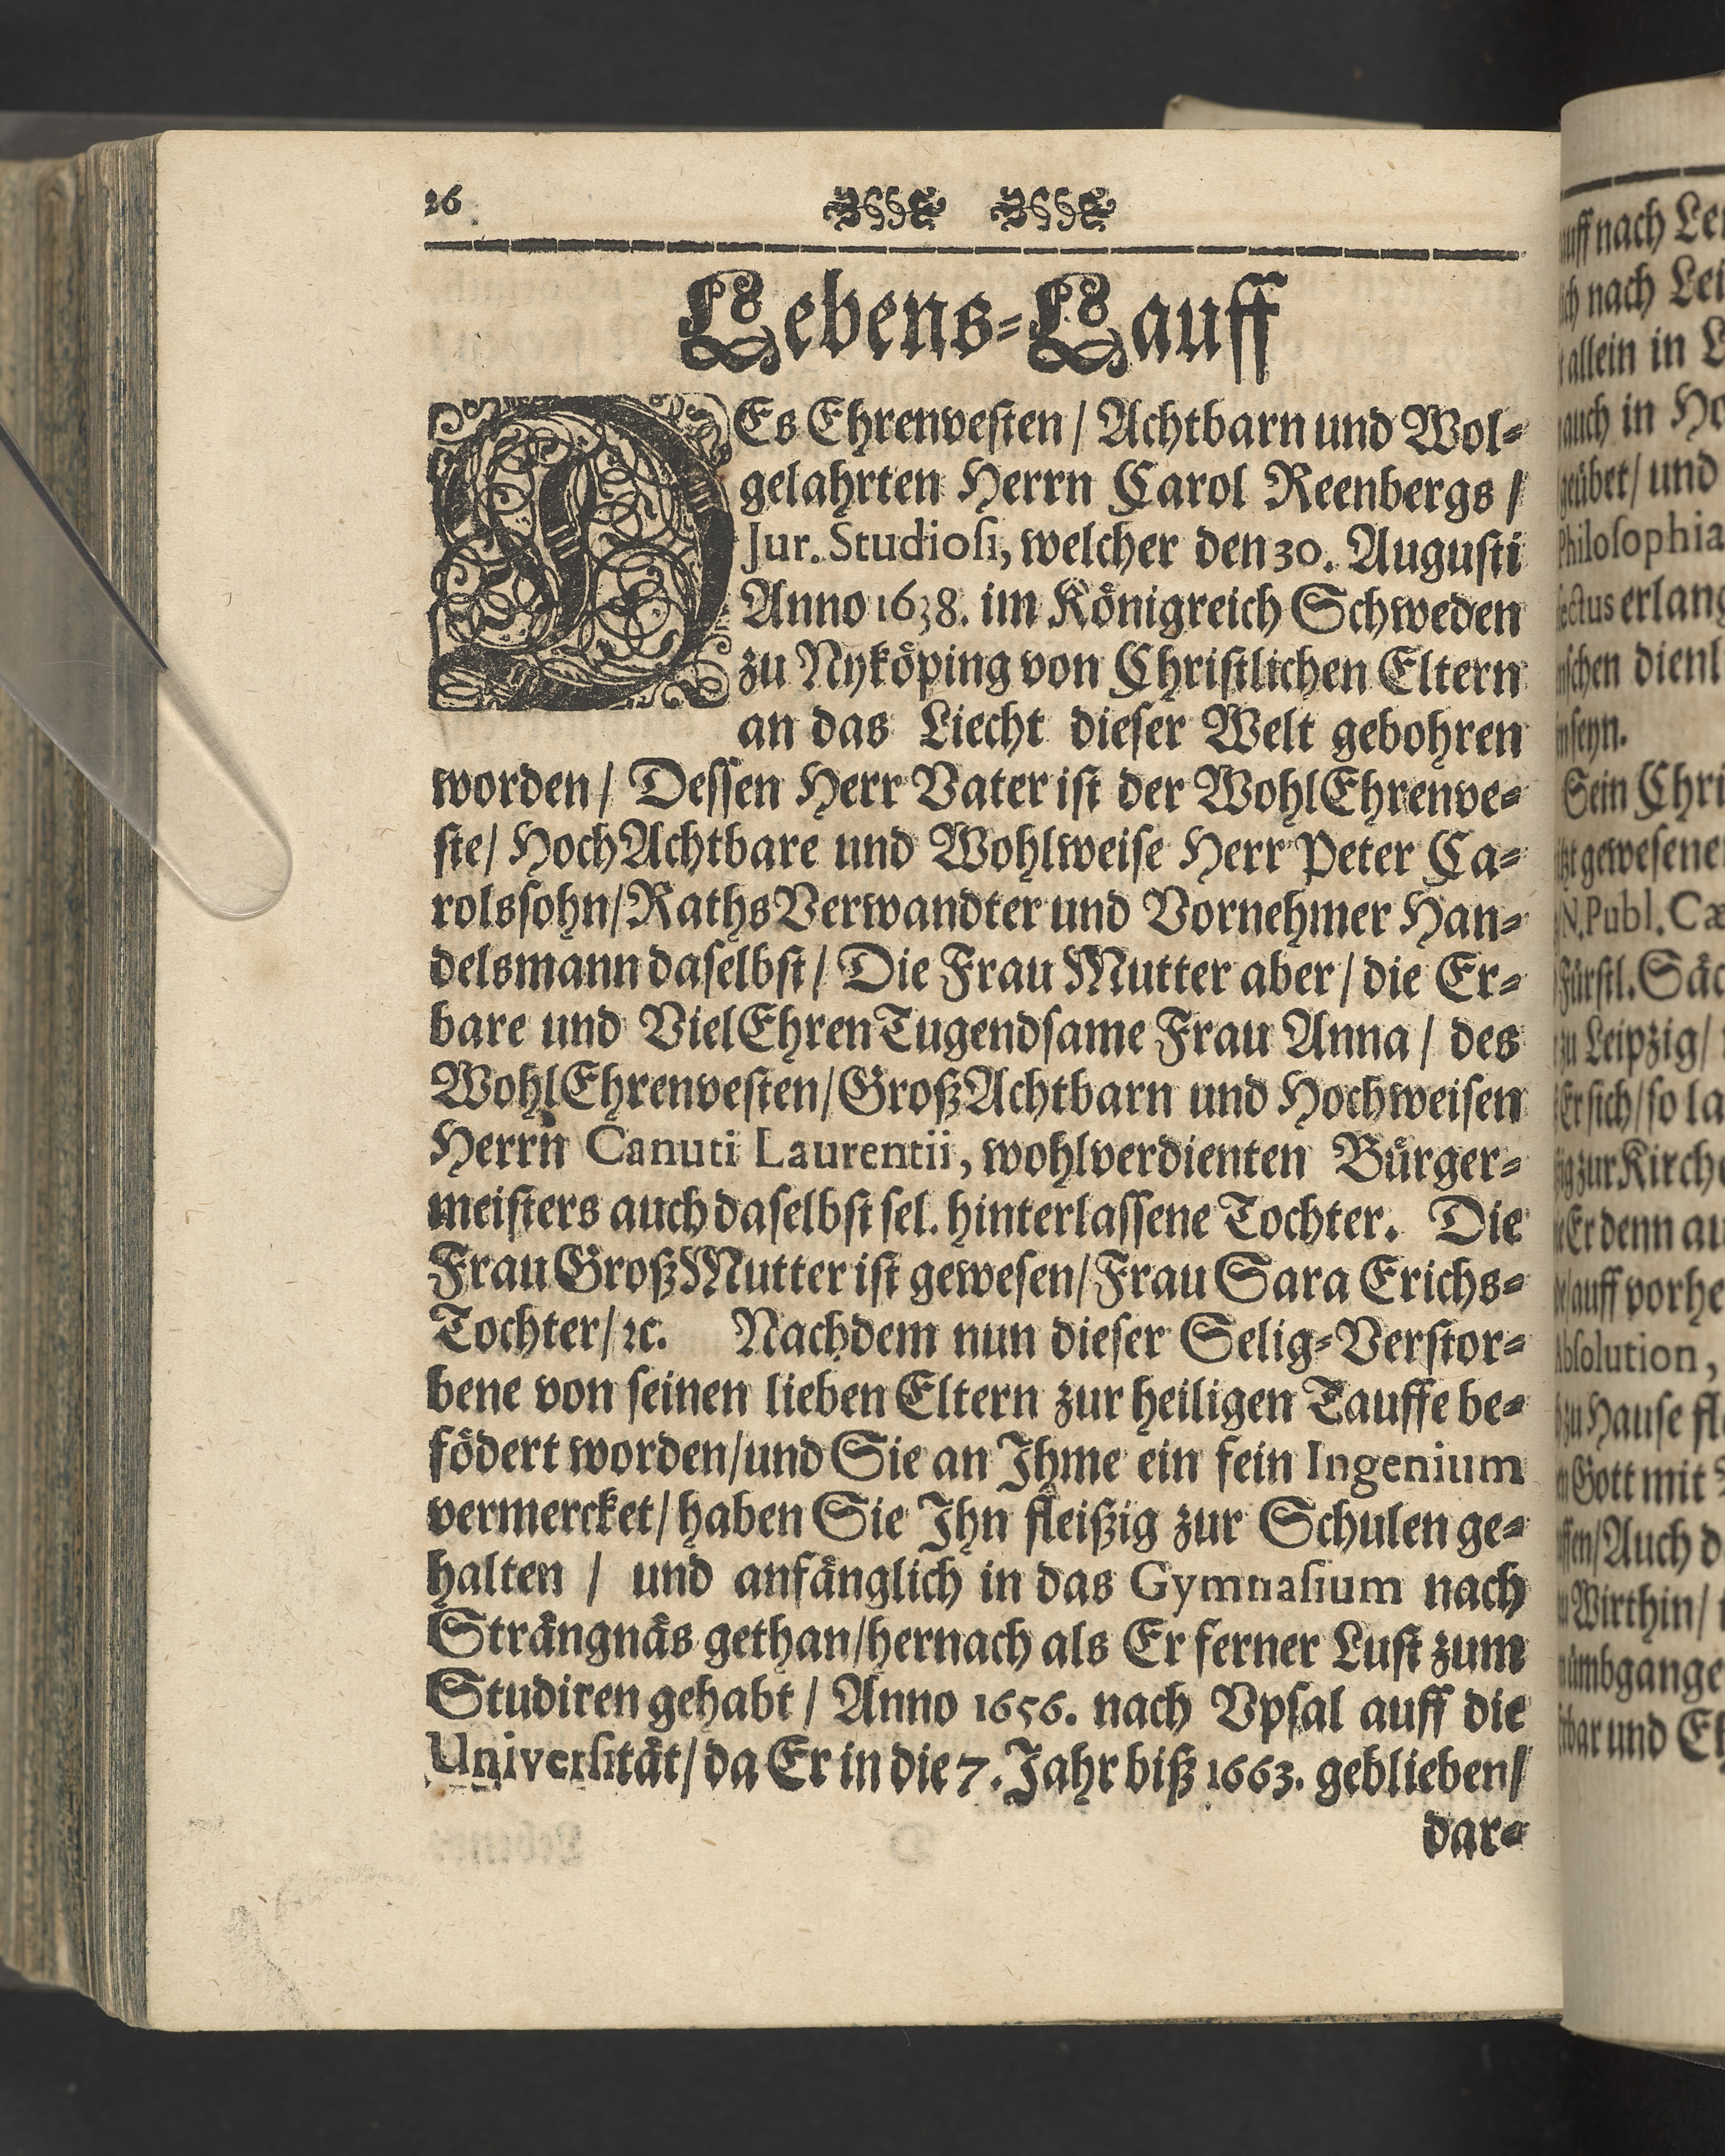 26
Lebens-Lauff
DEs Ehrenvesten / Achtbarn und Wol-
gelahrten Herrn Carol Reenbergs /
Jur. Studiosi, welcher den 30. Augusti
Anno 1638. im Königreich Schweden
zu Nyköping von Christlichen Eltern
an das Liecht dieser Welt gebohren
worden / Dessen Herr Vater ist der WohlEhrenve-
ste / HochAchtbare und Wohlweise Herr Peter Ca-
rolssohn / RathsVerwandter und Vornehmer Han-
delsmann daselbst / Die Frau Mutter aber / die Er-
bare und VielEhrenTugendsame Frau Anna / des
WohlEhrenvesten / GroßAchtbarn und Hochweisen
Herrn Canuti Laurentii, wohlverdienten Bürger-
meisters auch daselbst sel. hinterlassene Tochter. Die
Frau GroßMutter ist gewesen / Frau Sara Erichs-
Tochter / ꝛc. Nachdem nun dieser Selig-Verstor-
bene von seinen lieben Eltern zur heiligen Tauffe be-
födert worden / und Sie an Ihme ein fein Ingenium
vermercket / haben Sie Ihn fleißig zur Schulen ge-
halten / und anfänglich in das Gymnasium nach
Strängnäs gethan / hernach als Er ferner Lust zum
Studiren gehabt / Anno 1656. nach Vpsal auff die
Universität / da Er in die 7. Jahr biß 1663. geblieben /
dar-
uff nach
nach
allein in
auch in
geübet / und
Philosophia
erlang
dienl
seyn.
Sein Chri
gewesene
N. Publ.
Fürstl.
zu Leipzig /
Er sich / so la
zur Kirche
Er denn au
auff vorhe
Absolution,
zu Hause
Gott mit
Auch d
Wirthin /
umbgange
bar und